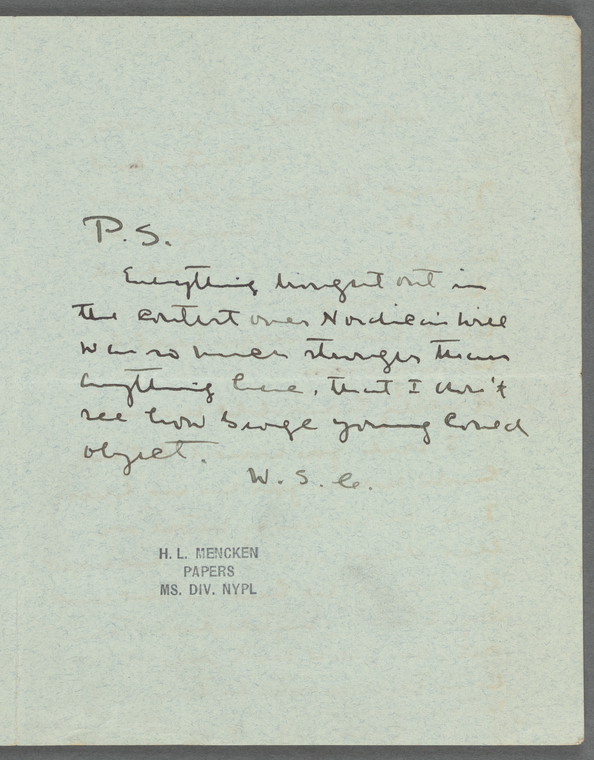 P.S.
Everything brought out in
the contest over Nordica's will
was so much stronger than
anything here, that I don't
see how George Young could
object.
W. S. C.
H. L. MENCKEN
PAPERS
MS. DIV. NYPL